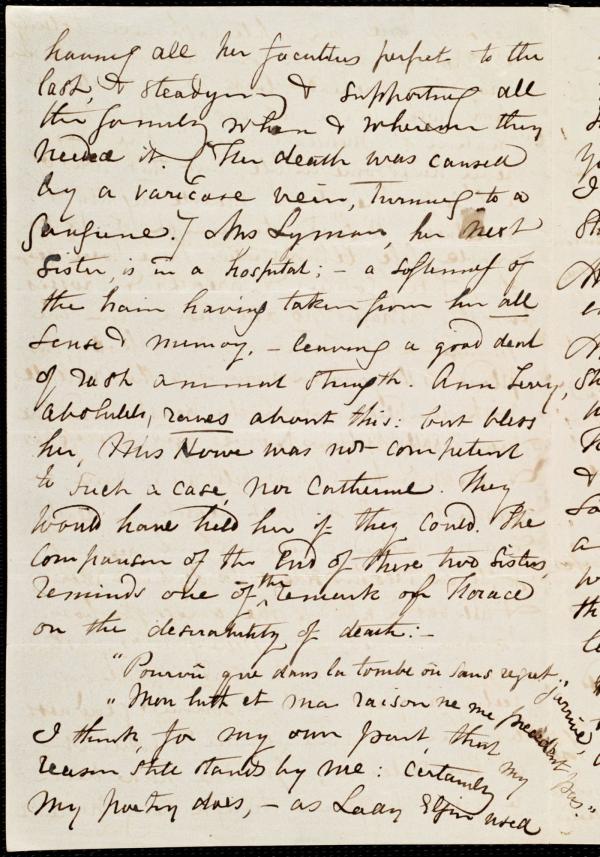 having all her faculties perfect to the
last, & steadying & supporting all
the family when & wherever they
needed it. (Her death was caused
by a varicose vein, turning to a
gangrene.) Mrs Lyman, her next
sister, is in a hospital; – a softening of
the brain having taken from her all
sense & memory, – leaving a good deal
of rash animal strength. Ann Levy,
absolutely, raves about this: but bless
her, Mrs Howe was not competent
to such a case, nor Catherine. They
would have held her if they could. The
comparison of the End of these two sisters,
reminds one of the remark of Horace
on the desirability of death: –
"Pourvu que dans la tombe où sans regret j'arrive,
"Mon luth et ma raison ne me précèdent pas."
I think, for my own part, that my
reason still stands by me: certainly
my poetry does, – as Lady Elgin used